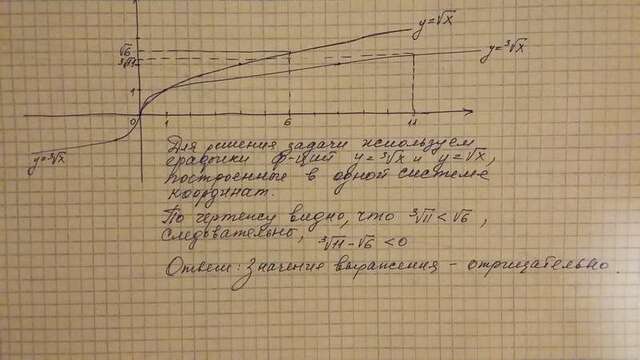 y=√x
y=³√x
√6
³√11
1
0
1
6
11
y=³√x
Для решения задачи используем
графики ф-ций y=³√x и y=√x,
построенные в одной системе
координат.
По чертежу видно, что ³√11 < √6,
следовательно, ³√11 - √6 < 0
Ответ: Значение выражения - отрицательно.